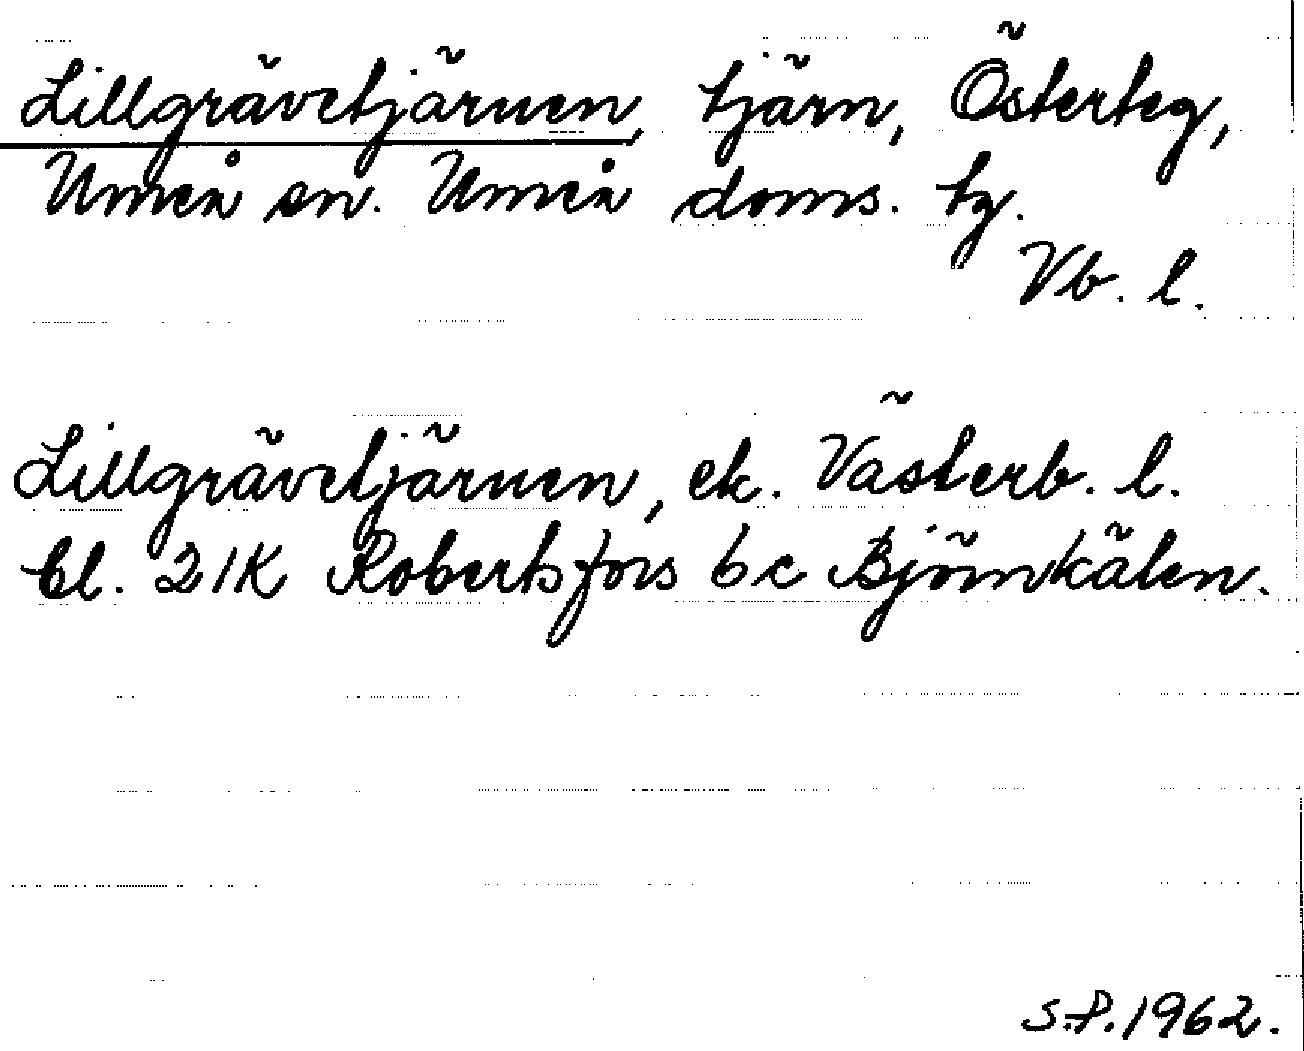 Lillgrävetjärnen, tjärn, Österteg,
Umeå sn. Umeå doms. tg.
Vb. l.
Lillgrävetjärnen, ek. Västerb. l.
bl. 21K Robertsfors 6c Björnkälen.
S.P. 1962.